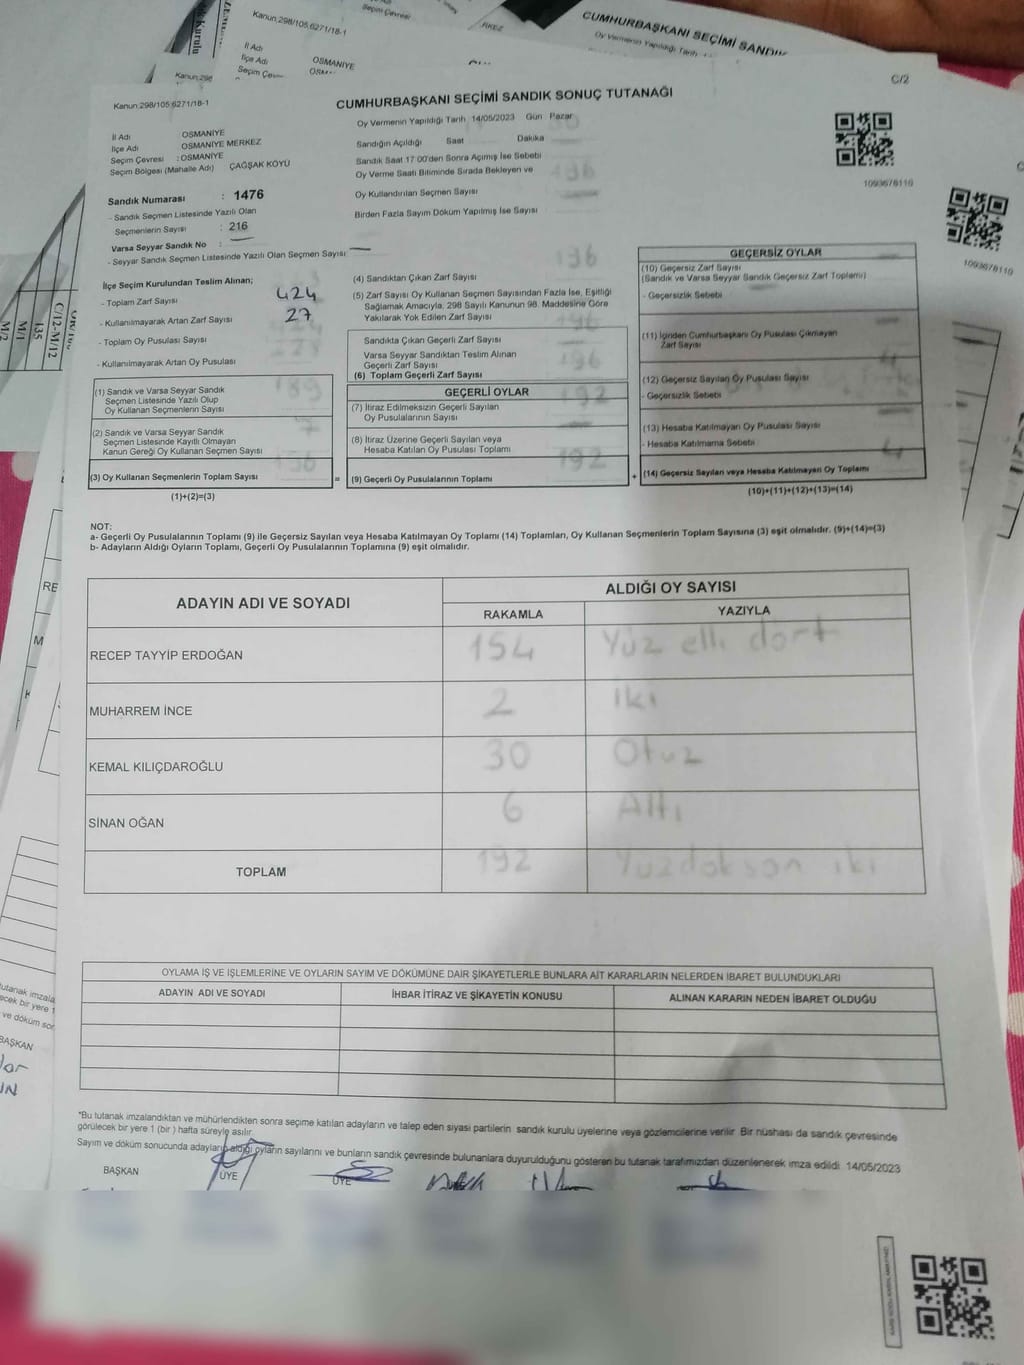 Kanun;298/105;6271/18-1
İl Adı
İlçe Adı
OSMANİYE
CUMHURBAŞKANI SEÇİMİ SANDIK
Oy Vermenin Yapıldığı Tarih
C/2
Kanun;298/105;6271/18-1
CUMHURBAŞKANI SEÇİMİ SANDIK SONUÇ TUTANAĞI
Oy Vermenin Yapıldığı Tarih 14/05/2023 Gün Pazar
İl Adı OSMANİYE
İlçe Adı OSMANİYE MERKEZ
Seçim Çevresi : OSMANİYE
Seçim Bölgesi (Mahalle Adı) ÇAĞŞAK KÖYÜ
Sandığın Açıldığı Saat Dakika
Sandık Saat 17 00'den Sonra Açımış İse Sebebi
Oy Verme Saati Bitiminde Sırada Bekleyen ve
Oy Kullandırılan Seçmen Sayısı
Birden Fazla Sayım Döküm Yapılmış İse Sayısı
1093678110
Sandık Numarası : 1476
- Sandık Seçmen Listesinde Yazılı Olan
Seçmenlerin Sayısı : 216
Varsa Seyyar Sandık No :
- Seyyar Sandık Seçmen Listesinde Yazılı Olan Seçmen Sayısı
İlçe Seçim Kurulundan Teslim Alınan;
- Toplam Zarf Sayısı 424
- Kullanılmayarak Artan Zarf Sayısı 27
- Toplam Oy Pusulası Sayısı
- Kullanılmayarak Artan Oy Pusulası
(1) Sandık ve Varsa Seyyar Sandık
Seçmen Listesinde Yazılı Olup
Oy Kullanan Seçmenlerin Sayısı
189
(2) Sandık ve Varsa Seyyar Sandık
Seçmen Listesinde Kayıtlı Olmayan
Kanun Gereği Oy Kullanan Seçmen Sayısı
7
(3) Oy Kullanan Seçmenlerin Toplam Sayısı
(1)+(2)=(3)
(4) Sandıktan Çıkan Zarf Sayısı
196
(5) Zarf Sayısı Oy Kullanan Seçmen Sayısından Fazla İse, Eşitliği
Sağlamak Amacıyla, 298 Sayılı Kanunun 98. Maddesine Göre
Yakılarak Yok Edilen Zarf Sayısı
Sandıkta Çıkan Geçerli Zarf Sayısı
196
Varsa Seyyar Sandıktan Teslim Alınan
Geçerli Zarf Sayısı
(6) Toplam Geçerli Zarf Sayısı
196
GEÇERLİ OYLAR
(7) İtiraz Edilmeksizin Geçerli Sayılan
Oy Pusulalarının Sayısı
192
(8) İtiraz Üzerine Geçerli Sayılan veya
Hesaba Katılan Oy Pusulası Toplamı
=
(9) Geçerli Oy Pusulalarının Toplamı
192
+
GEÇERSİZ OYLAR
(10) Geçersiz Zarf Sayısı
(Sandık ve Varsa Seyyar Sandık Geçersiz Zarf Toplamı)
- Geçersizlik Sebebi
(11) İçinden Cumhurbaşkanı Oy Pusulası Çıkmayan
Zarf Sayısı
(12) Geçersiz Sayılan Oy Pusulası Sayısı
4
- Geçersizlik Sebebi
(13) Hesaba Katılmayan Oy Pusulası Sayısı
- Hesaba Katılmama Sebebi
(14) Geçersiz Sayılan veya Hesaba Katılmayan Oy Toplamı
4
(10)+(11)+(12)+(13)=(14)
NOT:
a- Geçerli Oy Pusulalarının Toplamı (9) ile Geçersiz Sayılan veya Hesaba Katılmayan Oy Toplamı (14) Toplamları, Oy Kullanan Seçmenlerin Toplam Sayısına (3) eşit olmalıdır. (9)+(14)=(3)
b- Adayların Aldığı Oyların Toplamı, Geçerli Oy Pusulalarının Toplamına (9) eşit olmalıdır.
ADAYIN ADI VE SOYADI
ALDIĞI OY SAYISI
RAKAMLA YAZIYLA
RECEP TAYYİP ERDOĞAN 154 Yüz elli dört
MUHARREM İNCE 2 İki
KEMAL KILIÇDAROĞLU 30 Otuz
SİNAN OĞAN 6 Altı
TOPLAM 192 Yüzdoksan iki
OYLAMA İŞ VE İŞLEMLERİNE VE OYLARIN SAYIM VE DÖKÜMÜNE DAİR ŞİKAYETLERLE BUNLARA AİT KARARLARIN NELERDEN İBARET BULUNDUKLARI
ADAYIN ADI VE SOYADI İHBAR İTİRAZ VE ŞİKAYETİN KONUSU ALINAN KARARIN NEDEN İBARET OLDUĞU
*Bu tutanak imzalandıktan ve mühürlendikten sonra seçime katılan adayların ve talep eden siyasi partilerin sandık kurulu üyelerine veya gözlemcilerine verilir. Bir nüshası da sandık çevresinde
görülecek bir yere 1 (bir ) hafta süreyle asılır.
Sayım ve döküm sonucunda adayların aldığı oyların sayılarını ve bunların sandık çevresinde bulunanlara duyurulduğunu gösteren bu tutanak tarafımızdan düzenlenerek imza edildi. 14/05/2023
BAŞKAN ÜYE ÜYE